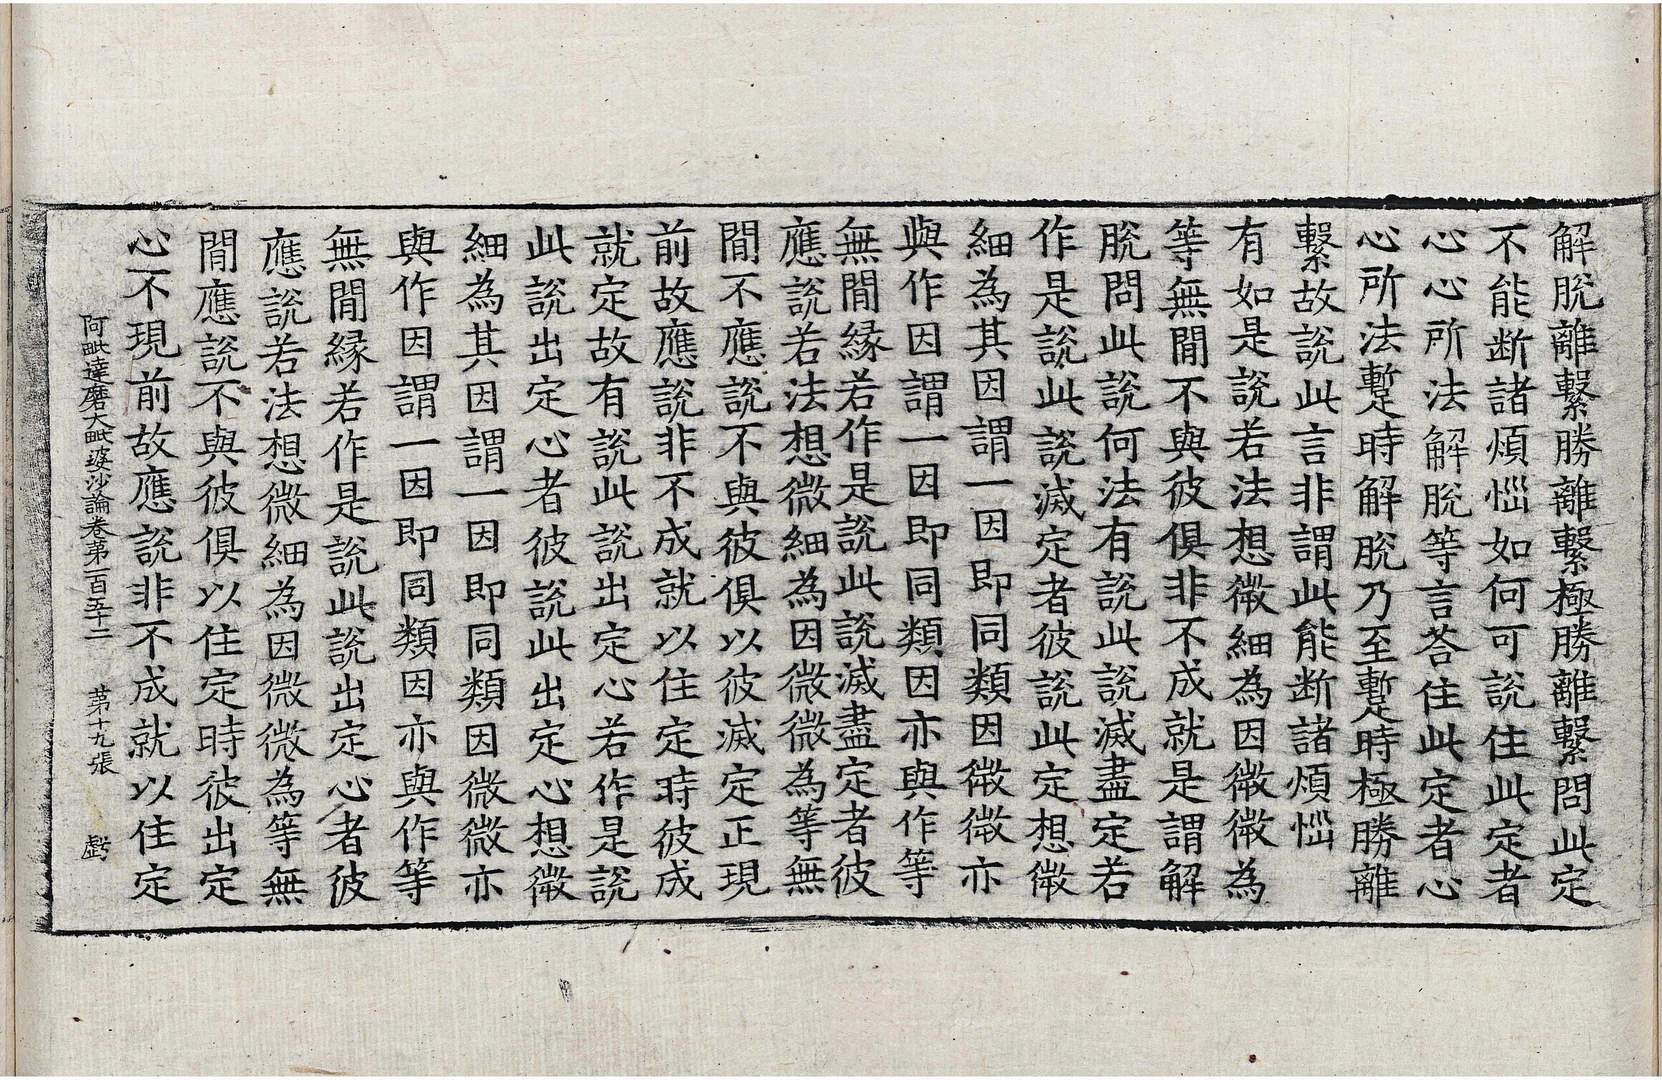 解脫離繫勝離繫極勝離繫問此定
不能断諸煩惱如何可說住此定者
心心所法解脫等言荅住此定者心
心所法暫時解脫乃至暫時極勝離
繫故說此言非謂此能断諸煩惱
有如是說若法想微細為因微微為
等無間不與彼俱非不成就是謂解
脫問此說何法有說此說滅盡定若
作是說此說滅定者彼說此定想微
細為其因謂一因即同類因微微亦
與作因謂一因即同類因亦與作等
無間緣若作是說此說滅盡定者彼
應說若法想微細為因微微為等無
間不應說不與彼俱以彼滅定正現
前故應說非不成就以住定時彼成
就定故有說此說出定心若作是說
此說出定心者彼說此出定心想微
細為其因謂一因即同類因微微亦
與作因謂一因即同類因亦與作等
無間緣若作是說此說出定心者彼
應說若法想微細為因微微為等無
間應說不與彼俱以住定時彼出定
心不現前故應說非不成就以住定
阿毗達磨大毗婆沙論卷第一百五十二 第十九張